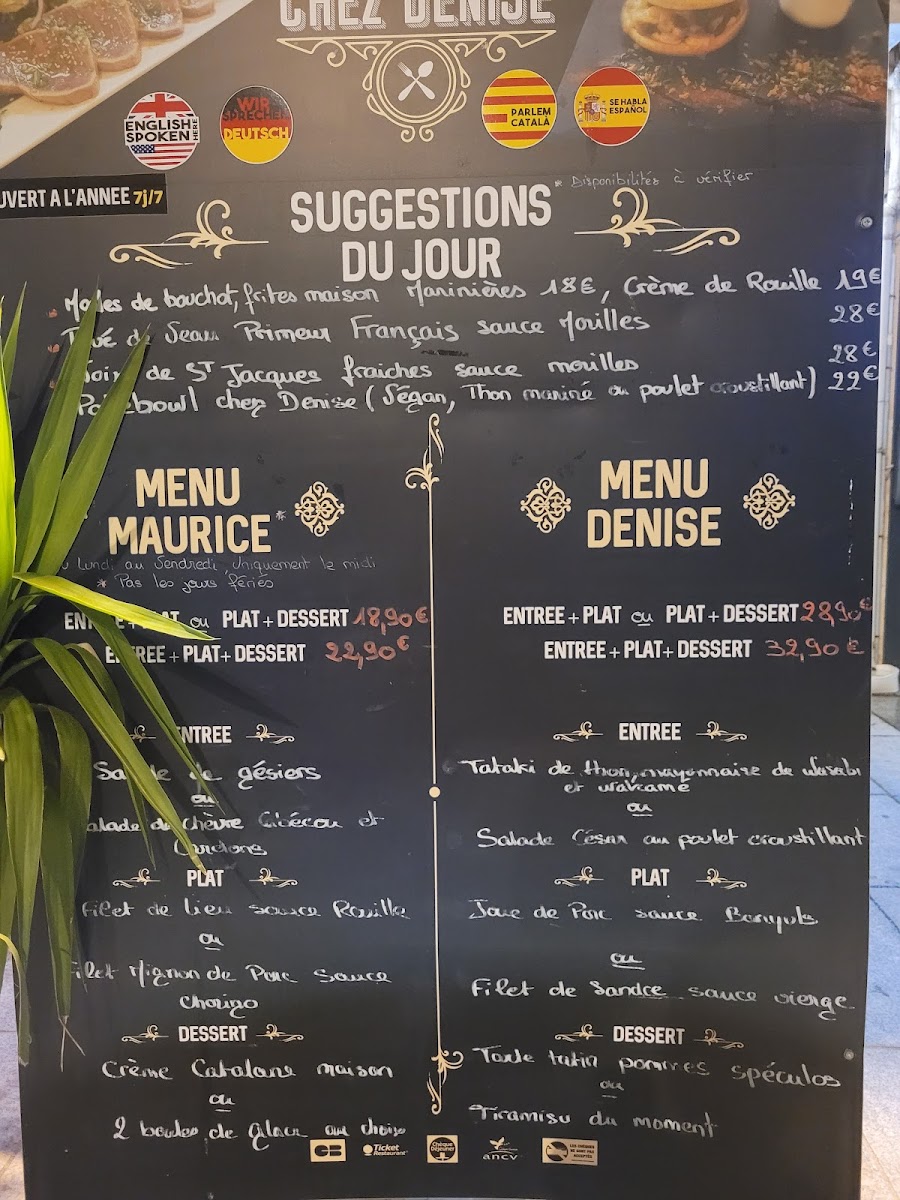 CHEZ DENISE
ENGLISH SPOKEN HERE
WIR SPRECHEN DEUTSCH
PARLEM CATALÀ
SE HABLA ESPAÑOL
UVERT A L'ANNEE 7j/7
* Disponibilités à vérifier
SUGGESTIONS
DU JOUR
Moules de bouchot, frites maison Marinières 18€, Crème de Rouille 19€
Pavé de Veau Primeur Français sauce Morilles 28€
Noix de ST Jacques fraiches sauce morilles 28€
Pokebowl chez Denise (Végan, Thon mariné ou poulet croustillant) 22€
MENU
MAURICE*
Lundi au Vendredi, Uniquement le midi
* Pas les jours fériés
ENTREE + PLAT ou PLAT + DESSERT 18,90€
ENTREE + PLAT + DESSERT 22,90€
ENTREE
Salade de gésiers
ou
Salade de Chèvre Cabécou et
Lardons
PLAT
Filet de lieu sauce Rouille
ou
Filet Mignon de Porc Sauce
Chorizo
DESSERT
Crème Catalane maison
ou
2 boules de glace au choix
MENU
DENISE
ENTREE + PLAT ou PLAT + DESSERT 28,90€
ENTREE + PLAT + DESSERT 32,90€
ENTREE
Tataki de thon, mayonnaise de wasabi
et wakamé
ou
Salade César au poulet croustillant
PLAT
Joue de Porc sauce Banyuls
ou
Filet de Sandre sauce vierge
DESSERT
Tarte tatin pommes spéculos
ou
Tiramisu du moment
CB
Ticket Restaurant
Chèque Déjeuner
ancv
LES CHEQUES NE SONT PAS ACCEPTES